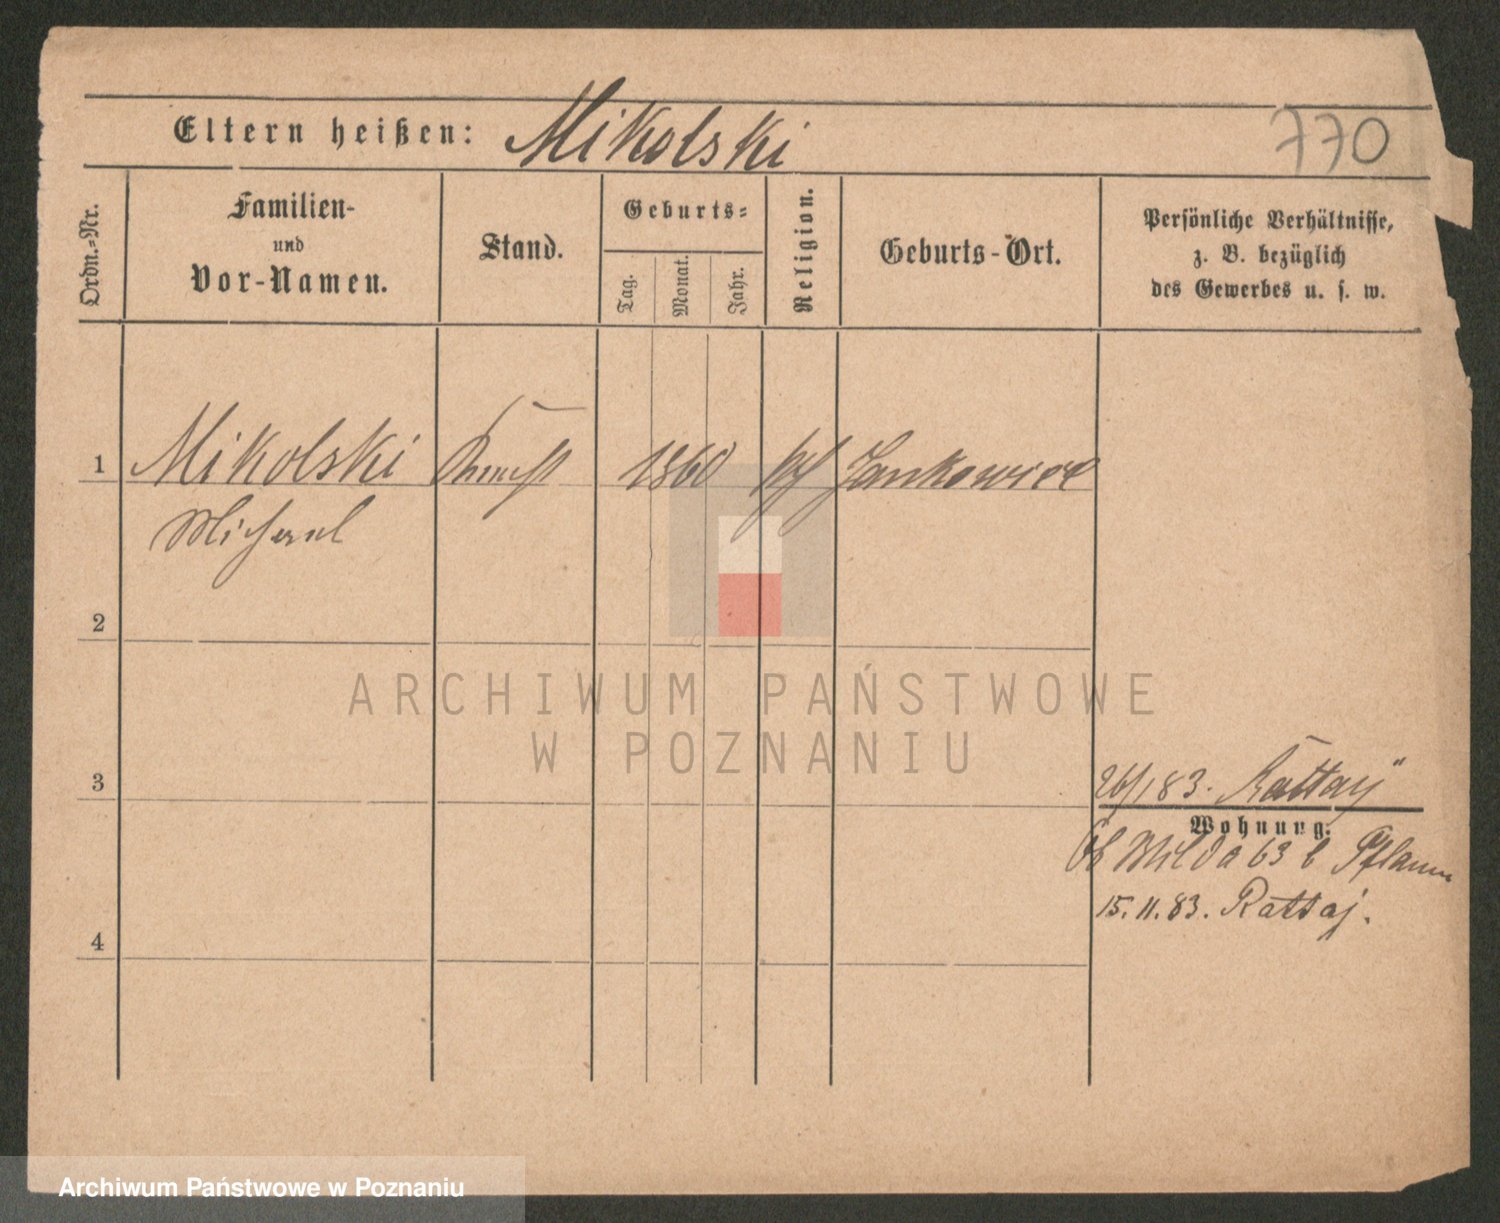 Eltern heißen: Mikolski 770
Ordn.=Nr.
Familien-
und
Vor-Namen.
Stand.
Geburts=
Tag.
Monat.
Jahr.
Religion.
Geburts-Ort.
Persönliche Verhältnisse,
z. B. bezüglich
des Gewerbes u. s. w.
1 Mikolski 1860
Michael
2
ARCHIWUM PAŃSTWOWE
W POZNANIU
3
83. Rattay
Wohnung.
Wilda 63 b
15. 11. 83. Rattaj.
4
Archiwum Państwowe w Poznaniu